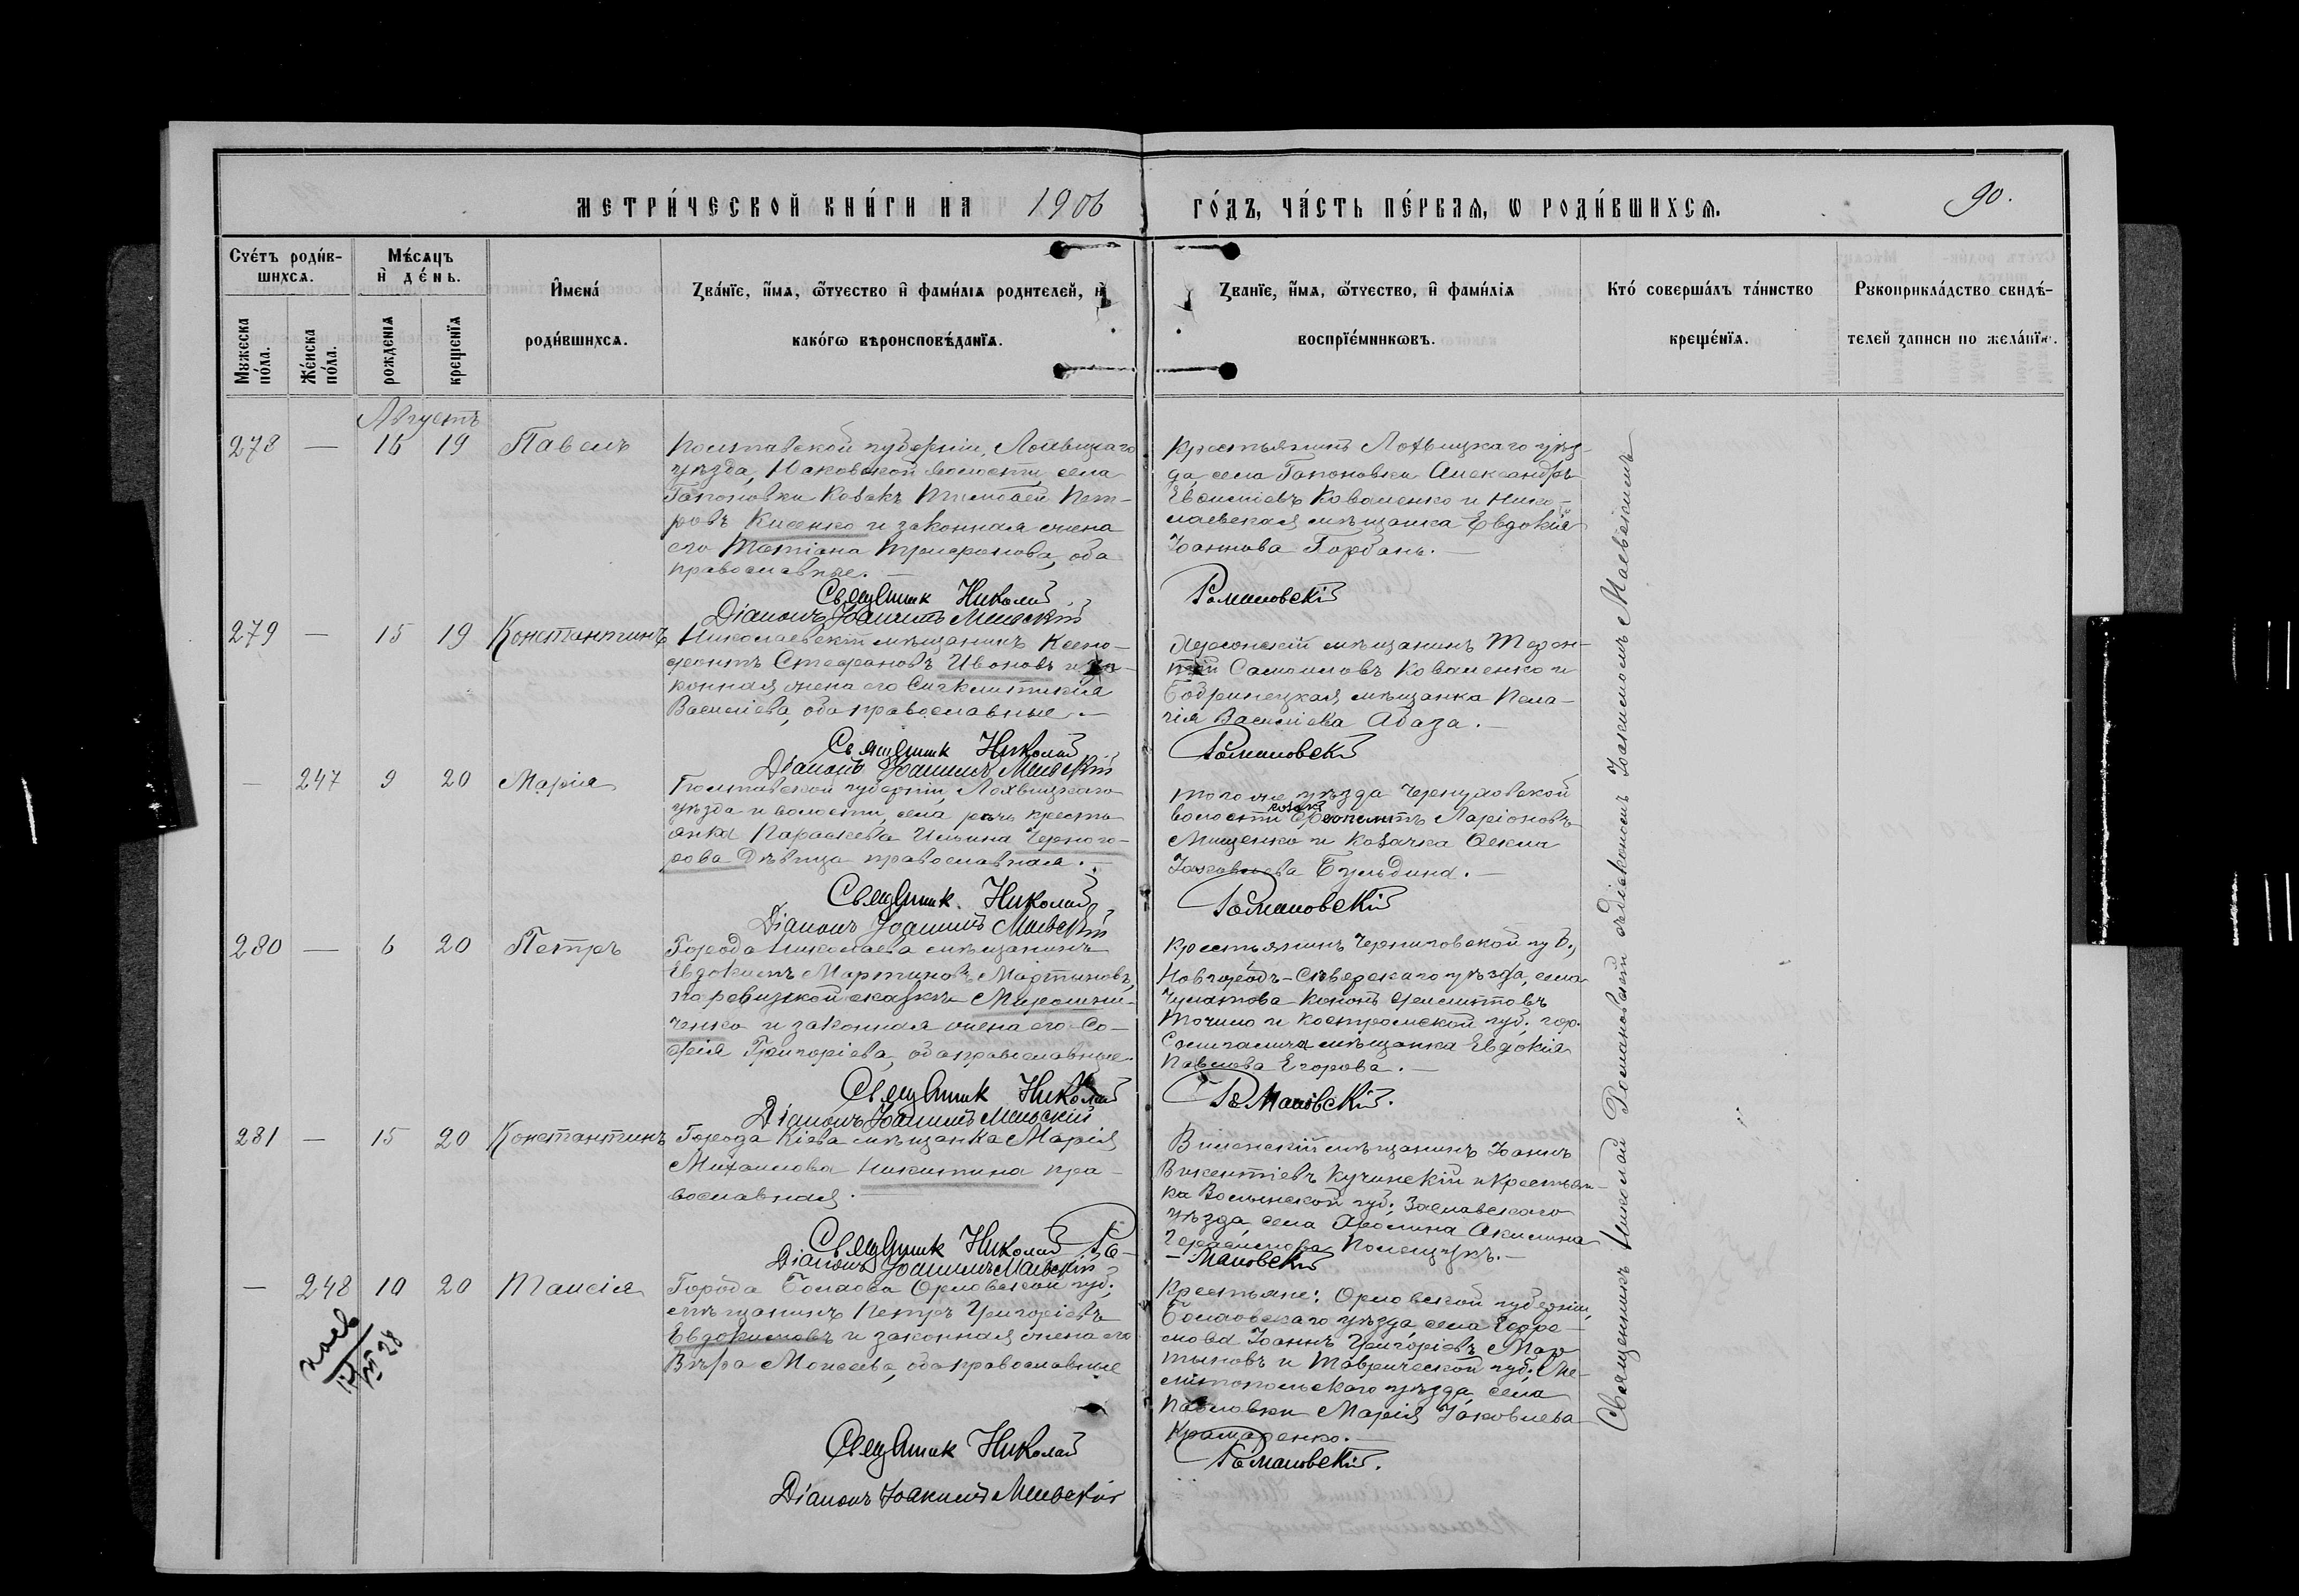 МЕТРИ́ЧЕСКОЙ КНИ́ГИ НА 1906 ГО́ДЪ, ЧА́СТЬ ПЕ́РВАѦ, Ѡ РОДИ́ВШИХСѦ.
90.
Сче́тъ роди́в-
шихсѧ.
Мѣ́сѧцъ
и҆ де́нь.
Мꙋжеска
по́ла.
Же́нска
по́ла.
рожденїѧ
крещенїѧ
И҆мена́
роди́вшихсѧ.
Зва́нїе, и҆́мѧ, ѻ҆́тчество и҆ фами́лїѧ родителей, и҆
како́гѡ вѣроисповѣ́данїѧ.
Зва́нїе, и҆́мѧ, ѻ҆́тчество, и҆ фами́лїѧ
воспрїе́мникѡвъ.
Кто́ соверша́лъ та́инство
креще́нїѧ.
Рꙋкоприкла́дство свидѣ́-
телей записи по жела́нїю.
Августъ
278 — 15 19 Павелъ
Полтавской губерніи, Лохвицкаго
уѣзда, волости, села
Гапоновки козакъ Тимофей Пет-
ровъ Кисенко и законная жена
его Татіана Трифонова, оба
православные. —
Священник Николай
Діаконъ Іоакимъ Маевский
Крестьянинъ Лохвицкаго уѣз-
да села Гапоновки Александръ
Коваленко и Нико-
лаевская мѣщанка Евдокія
Іоаннова Горбань. —
Романовскій
279 — 15 19 Константинъ
Николаевскій мѣщанинъ Ксено-
фонтъ Стефановъ Ивановъ и за-
конная жена его Синклитикія
Василіева, оба православные. —
Священник Николай
Діаконъ Іоакимъ Маевскій
Херсонскій мѣщанинъ Терен-
тій Самоиловъ Коваленко и
Бобринецкая мѣщанка Пела-
гія Василіева Абаза. —
Романовскій
— 247 9 20 Марія
Полтавской губерніи, Лохвицкаго
уѣзда и волости, села кресть-
янка Параскева Ильина Черного-
рова дѣвица православная. —
Священник Николай
Діаконъ Іоакимъ Маевскій
того же уѣзда Чернуховской
волости козакъ Ларіоновъ
Мищенко и козачка Ѳекла
Іаковлева Бульдина. —
Романовскій
280 — 6 20 Петръ
Города Николаева мѣщанинъ
Евдокимъ Мартиновъ Мартыновъ,
по ревизской сказкѣ Мирошни-
ченко и законная жена его Со-
фія Григоріева, оба православные.
Священник Николай
Діаконъ Іоакимъ Маевскій
Крестьянинъ Черниговской губ.,
Новгородъ-Сѣверскаго уѣзда, села
Кононъ
Точило и Костромской губ. гор.
Солигалича мѣщанка Евдокія
Павлова Егорова. —
Романовскій.
281 — 15 20 Константинъ
Города Кіева мѣщанка Марія
Михаилова Никитина пра-
вославная.
Священник Николай Ро-
Діаконъ Іоакимъ Маевскій
Виленскій мѣщанинъ Іоаннъ
Викентіевъ Кучинскій и крестьян-
ка Волынской губ. Заславскаго
уѣзда, села Акилина
Полещукъ. —
— мановскій
— 248 10 20 Таисія
Города Болхова Орловской губ.
мѣщанинъ Петръ Григоріевъ
Евдокимовъ и законная жена его
Вѣра Моисеева, оба православные
Священник Николай
Діаконъ Іоакимъ Маевскій
Крестьяне: Орловской губерніи,
Болховскаго уѣзда, села
Іоаннъ Григоріевъ Мар-
тыновъ и Таврической губ. Ме-
литопольскаго уѣзда, села
Павловки Марія Іаковлева
Крамаренко. —
Романовскій.
Священникъ Николай Романовскій съ діакономъ Іоакимомъ Маевскимъ